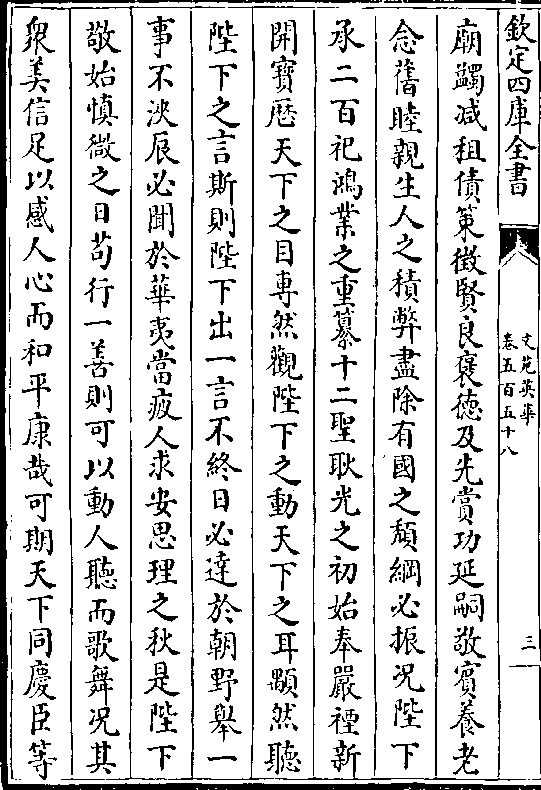 欽定四庫全書
文苑英華
卷五百五十八
三
廟蠲减租債策徵賢良褒德及先賞功延嗣敬賓養老
念舊睦親生人之積弊盡除有國之頹綱必振況陛下
承二百祀鴻業之重纂十二聖耿光之初始奉嚴禋新
開寳厯天下之目専然觀陛下之動天下之耳顒然聽
陛下之言斯則陛下出一言不終日必達於朝野舉一
事不浹辰必聞於華夷當疲人求安思理之秋是陛下
敬始慎微之日茍行一善則可以動人聽而歌舞況其
衆美信足以感人心而和平康哉可期天下同慶臣等